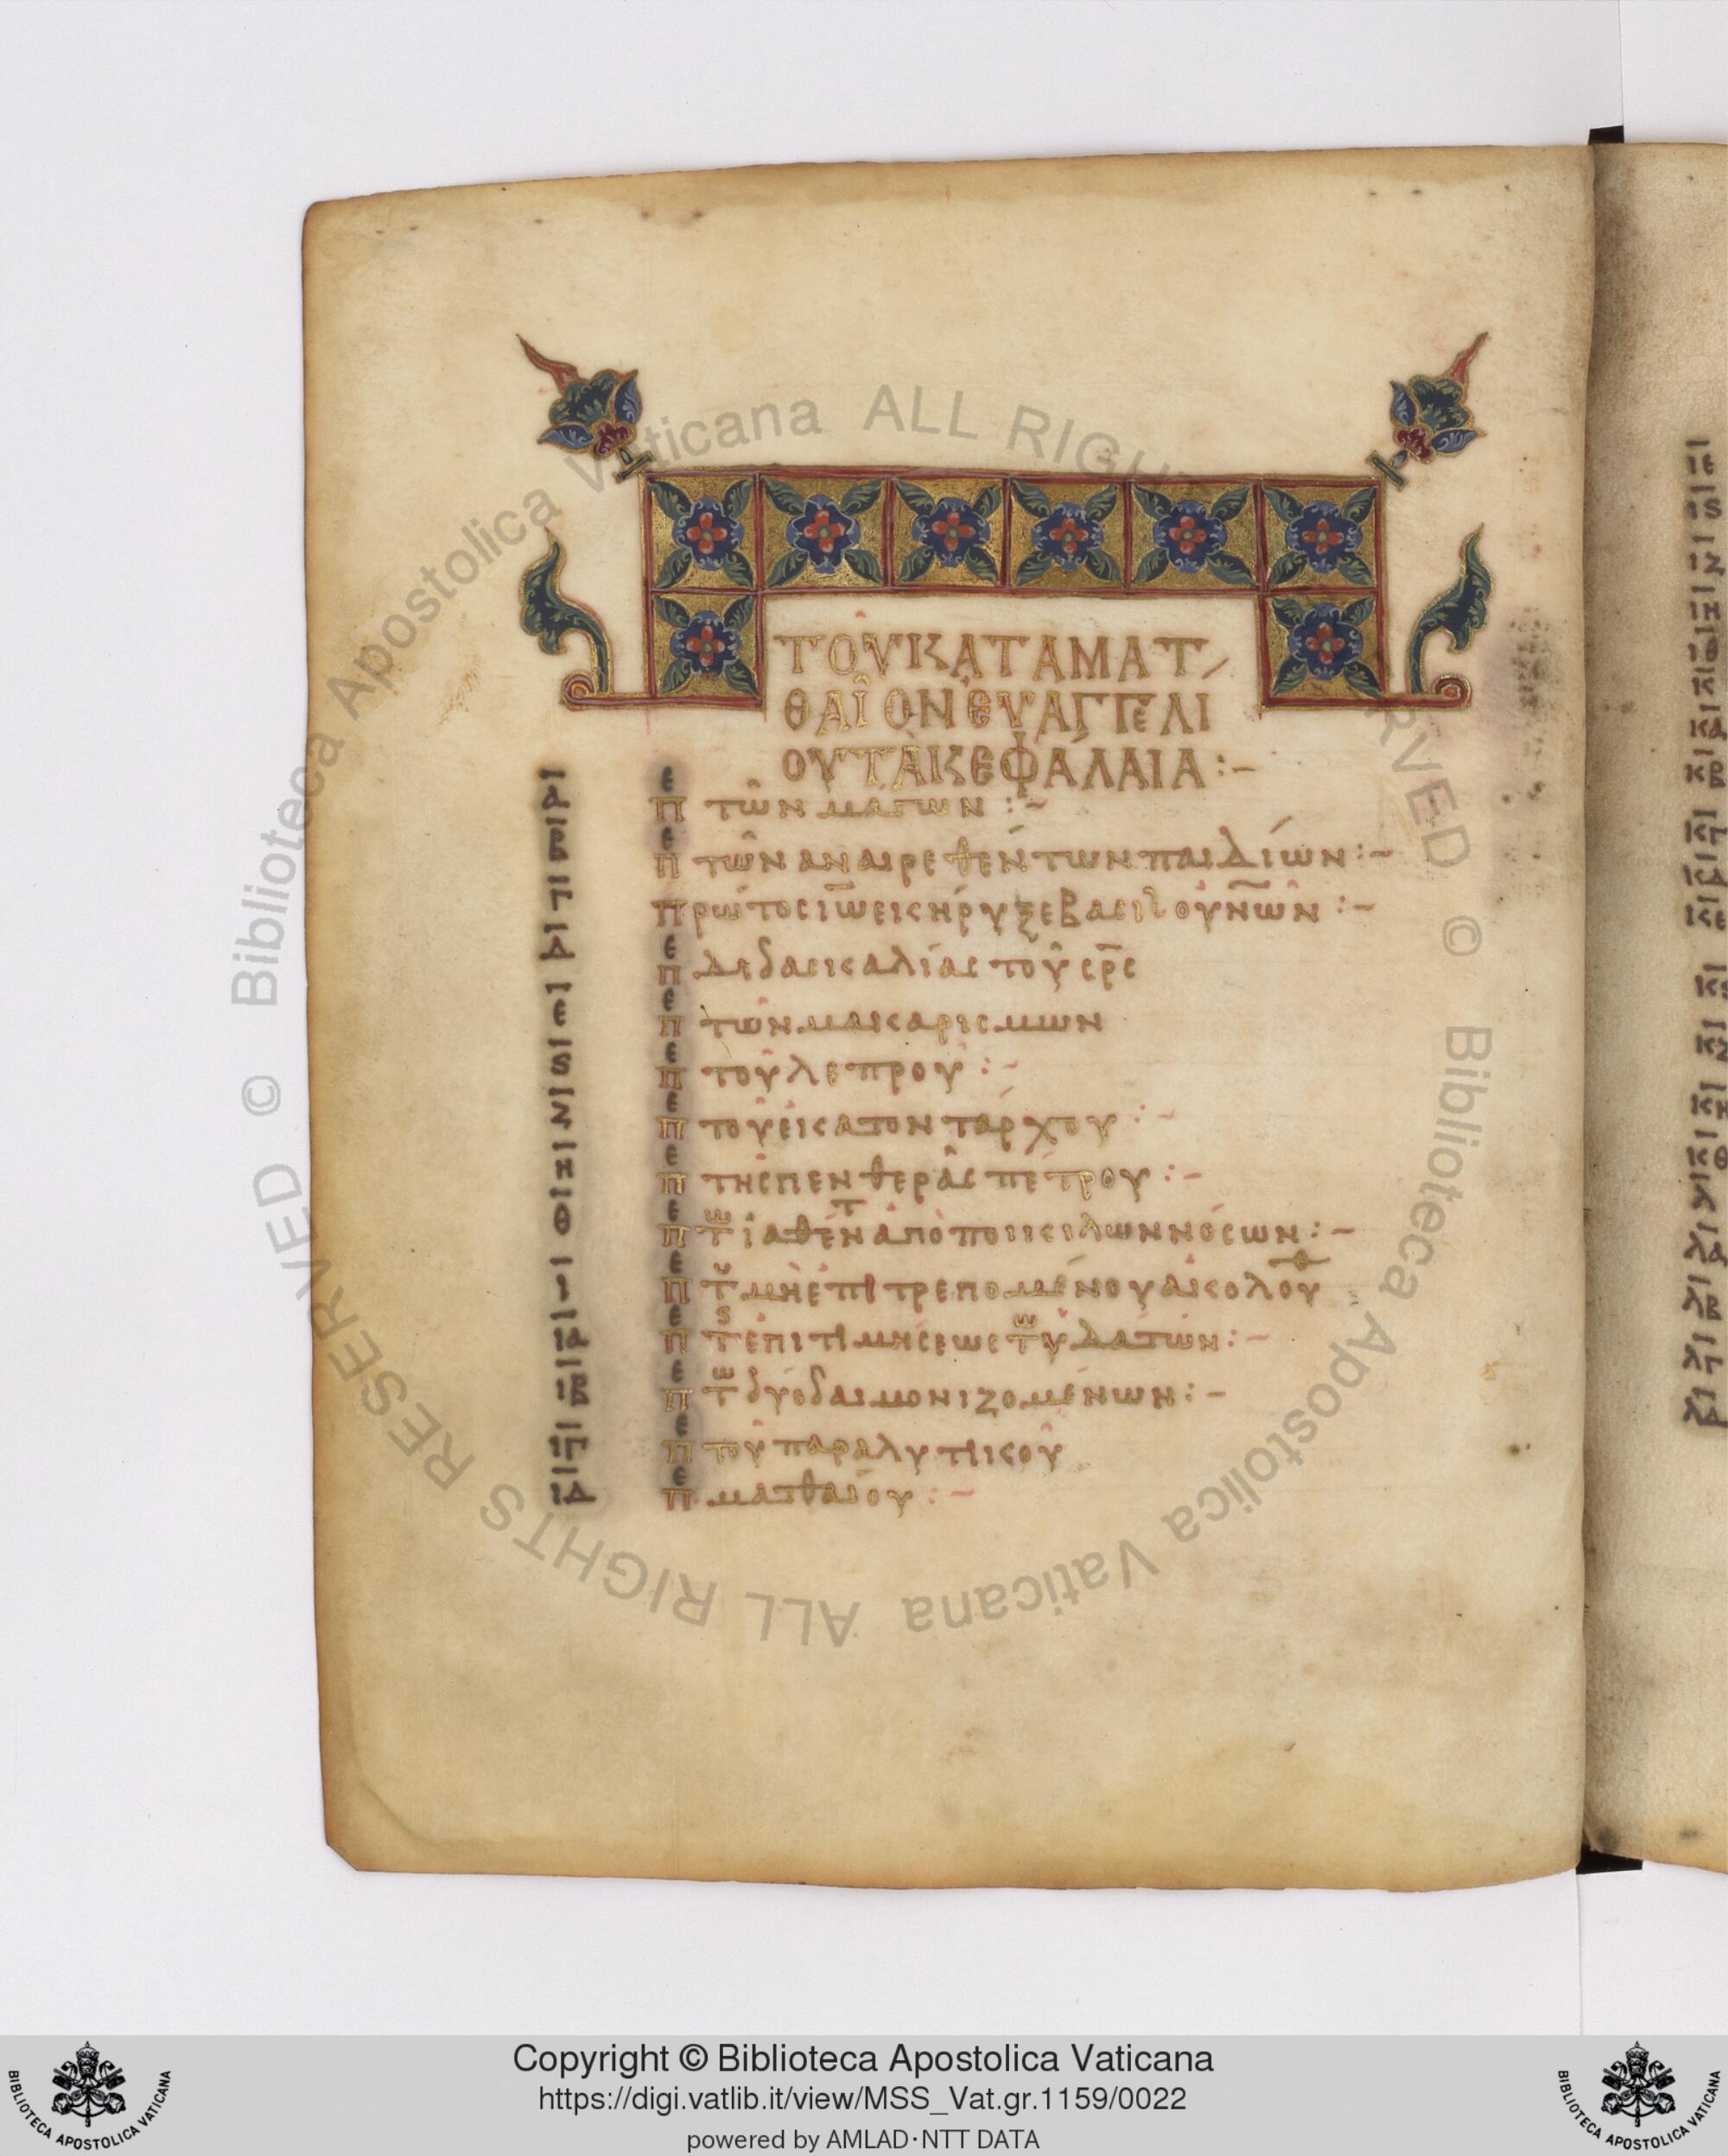 ΤΟΥ ΚΑΤΑ ΜΑΤ
ΘΑΙΟΝ ΕΥΑΓΓΕΛΙ
ΟΥ ΤΑ ΚΕΦΑΛΑΙΑ :–
Α πε τῶν μάγων :–
Β πε τῶν ἀναιρεθέντων παιδίων :–
Γ πρώτος ιω̅ εκήρυξε βασιλ οὐνῶν :–
Δ πε διδασκαλίας τοῦ σρ̅ς
Ε πε τῶν μακαρισμων
Ϛ πε τοῦ λεπροῦ :–
Ζ πε τοῦ ἑκατοντάρχου :–
Η πε τῆς πενθερᾶς πέτρου :–
Θ πε τω ἰαθέντ ἀπὸ ποικιλων νόσων :–
Ι πε τυ μὴ ἐπιτρεπομένου ἀκολουθ
ΙΑ πε τς ἐπιτιμήσεως τω ὑδάτων :–
ΙΒ πε τω δύο δαιμονιζομένων :–
ΙΓ πε τοῦ παραλυτικοῦ
ΙΔ πε ματθαίου :–
ΙΕ
ΙϚ
ΙΖ
ΙΗ
ΙΘ
Κ
ΚΑ
ΚΒ
ΚΓ
ΚΔ
ΚΕ
ΚϚ
ΚΖ
ΚΗ
ΚΘ
Λ
ΛΑ
ΛΒ
ΛΓ
ΛΔ
© Biblioteca Apostolica Vaticana ALL RIGHTS RESERVED
© Biblioteca Apostolica Vaticana ALL RIGHTS RESERVED
Copyright © Biblioteca Apostolica Vaticana
https://digi.vatlib.it/view/MSS_Vat.gr.1159/0022
powered by AMLAD·NTT DATA
BIBLIOTECA APOSTOLICA VATICANA
BIBLIOTECA APOSTOLICA VATICANA